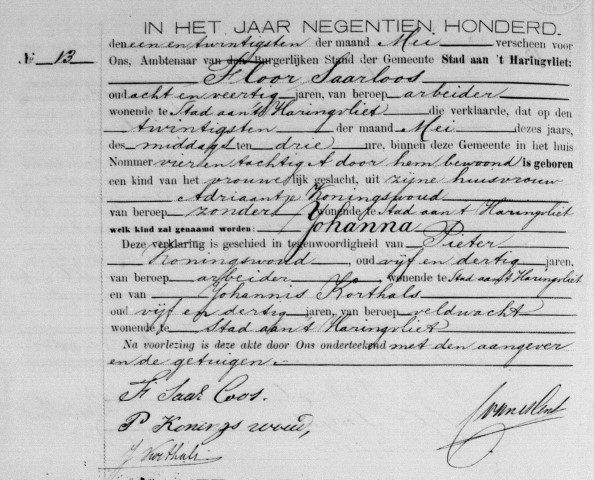 IN HET JAAR NEGENTIEN HONDERD.
den een en twintigsten der maand Mei verscheen voor
№ 13 Ons, Ambtenaar van den Burgerlijken Stand der Gemeente Stad aan 't Haringvliet:
Floor Saarloos
oud acht en veertig jaren, van beroep arbeider
wonende te Stad aan 't Haringvliet die verklaarde, dat op den
twintigsten der maand Mei dezes jaars,
des middags ten drie ure, binnen deze Gemeente in het huis
Nommer vier en tachtig A door hem bewoond is geboren
een kind van het vrouwelijk geslacht, uit zijne huisvrouw
Adriaantje Koningswoud
van beroep zonder wonende te Stad aan 't Haringvliet
welk kind zal genaamd worden: Johanna
Deze verklaring is geschied in tegenwoordigheid van Pieter
Koningswoud, oud vijf en dertig jaren,
van beroep arbeider wonende te Stad aan 't Haringvliet
en van Johannis Korthals
oud vijf en dertig jaren, van beroep veldwacht
wonende te Stad aan 't Haringvliet
Na voorlezing is deze akte door Ons onderteekend met den aangever
en de getuigen.
F Saar Loos.
P Konings woud,
J Korthals